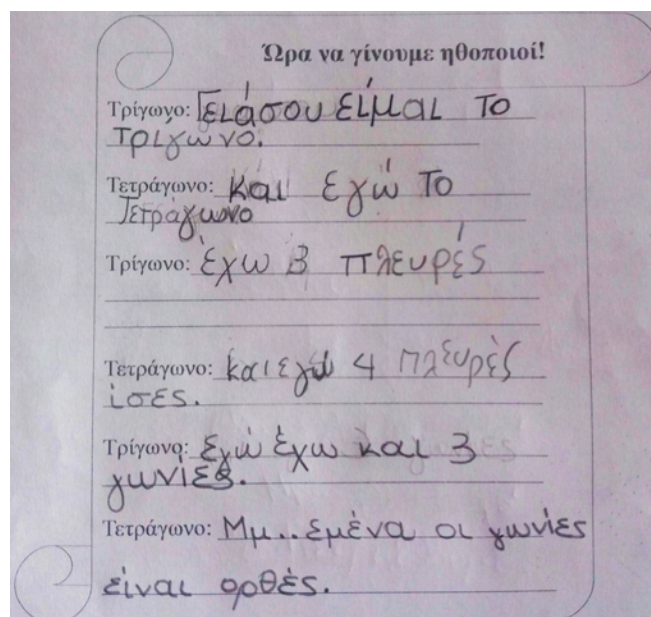 Ώρα να γίνουμε ηθοποιοί!
Τρίγωνο: Γειάσου είμαι το
τριγωνο.
Τετράγωνο: Και εγώ το
Τετράγωνο
Τρίγωνο: έχω 3 πλευρές
Τετράγωνο: και εγώ 4 πλευρές
ίσες.
Τρίγωνο: εγώ έχω και 3
γωνίες.
Τετράγωνο: Μμ.. εμένα οι γωνίες
είναι ορθές.